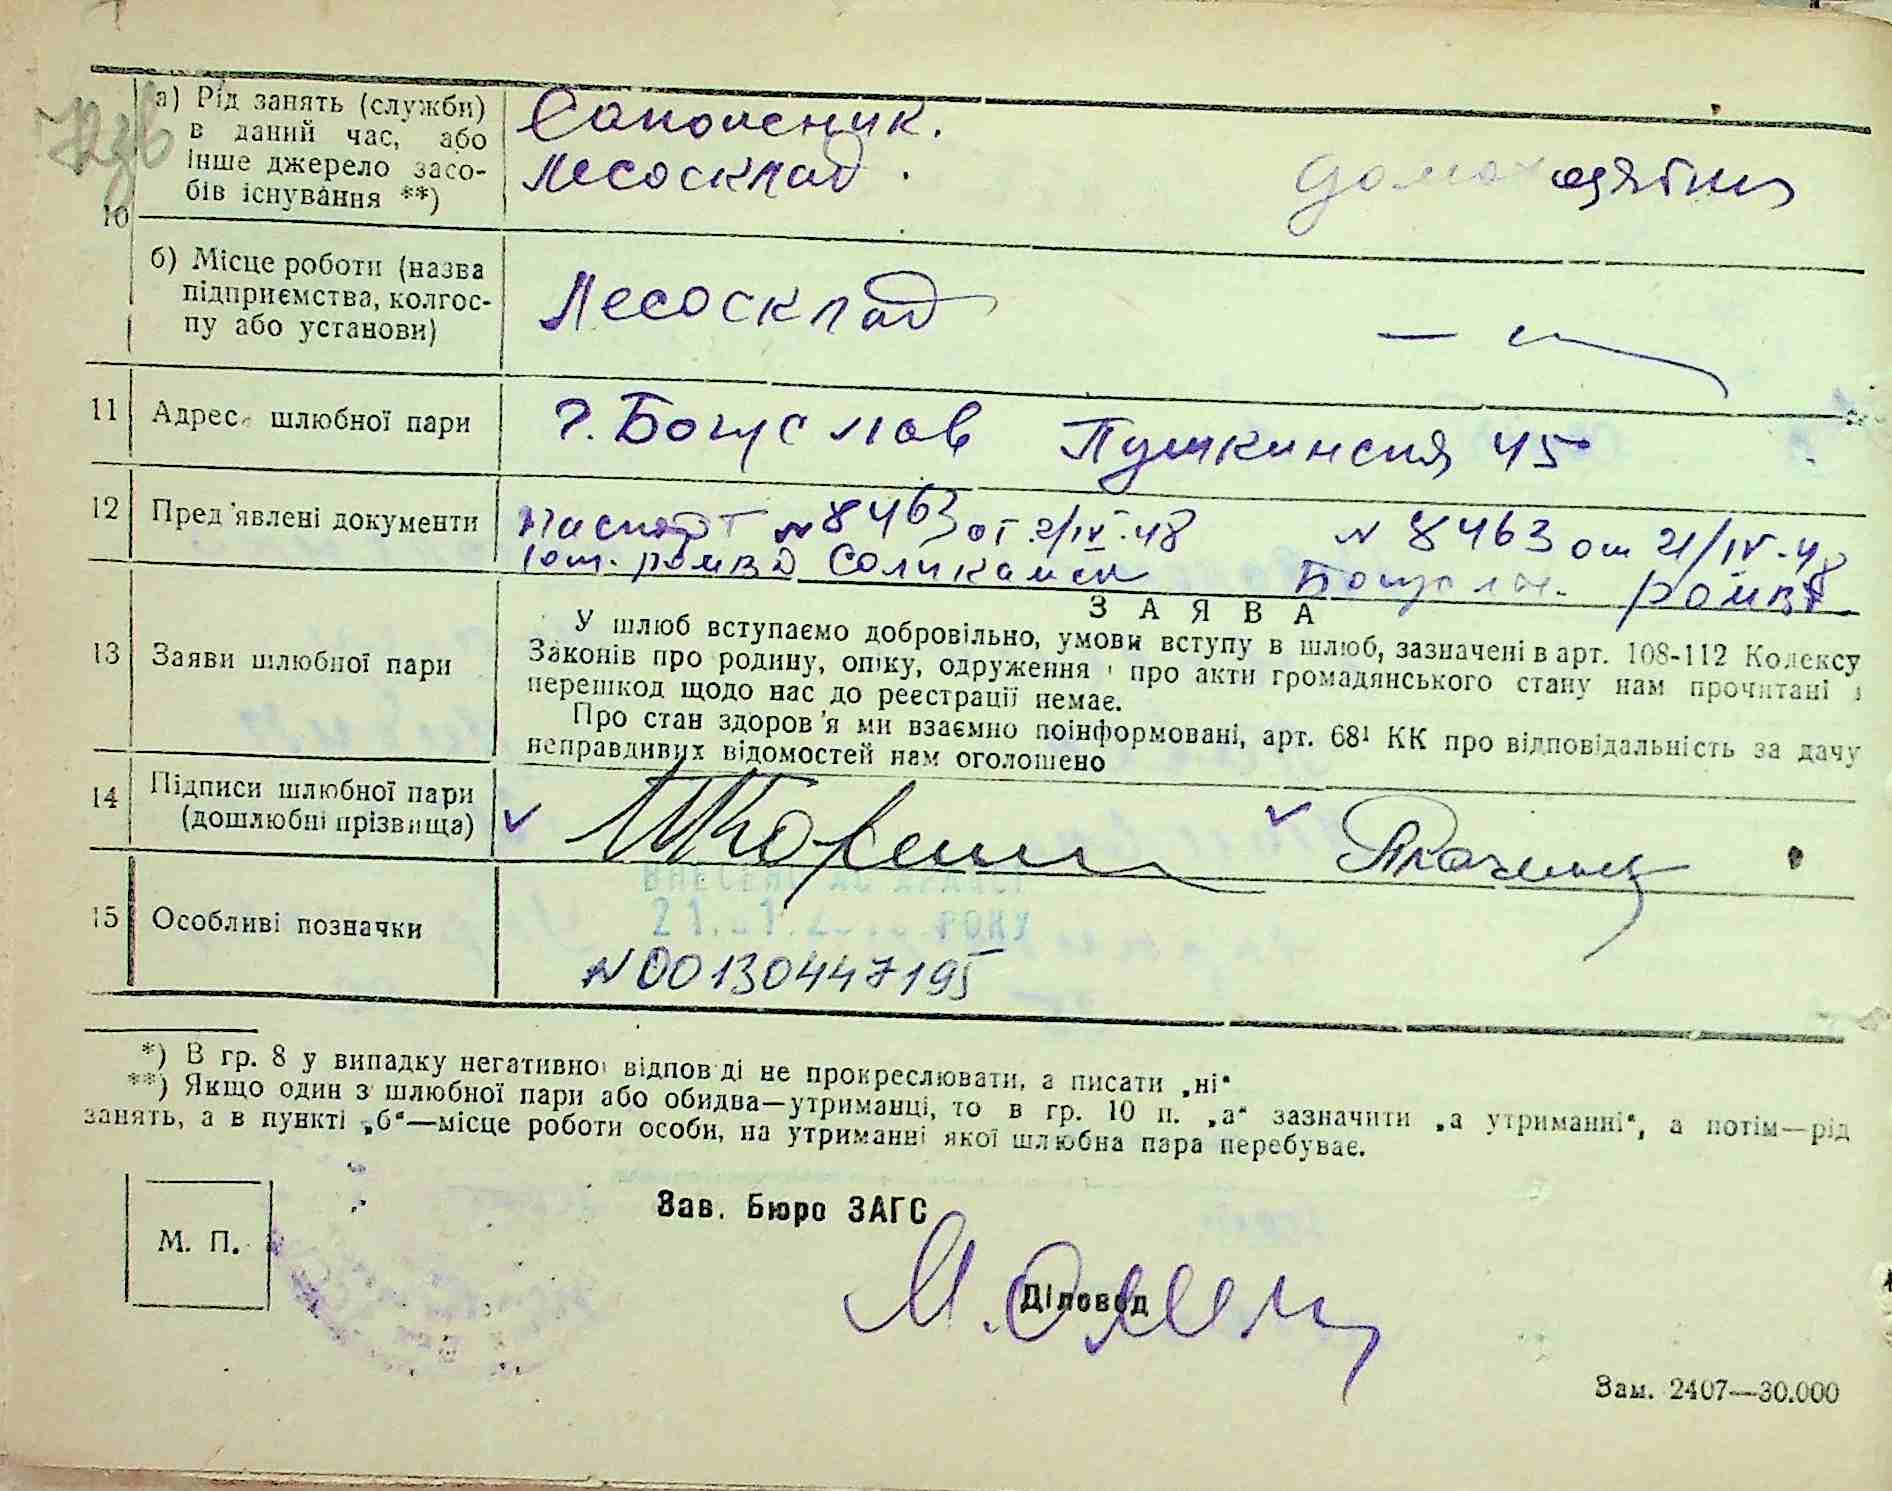 а) Рід занять (служби)
в даний час, або
інше джерело засо-
бів існування **)
Сапожник.
Лесосклад.
10
б) Місце роботи (назва
підприємства, колгос-
пу або установи)
Лесосклад
—
11 Адрес шлюбної пари
г. Богуслав Пушкинская 45
12 Пред'явлені документи
Паспорт № 8463 от 2/IV-48 № 8463 от 21/IV-48
Соликамск РОМВД
13 Заяви шлюбної пари
ЗАЯВА
У шлюб вступаємо добровільно, умови вступу в шлюб, зазначені в арт. 108-112 Кодексу
Законів про родину, опіку, одруження і про акти громадянського стану нам прочитані і
перешкод щодо нас до реєстрації немає.
Про стан здоров'я ми взаємно поінформовані, арт. 68¹ КК про відповідальність за дачу
неправдивих відомостей нам оголошено
14 Підписи шлюбної пари
(дошлюбні прізвища)
15 Особливі позначки
РОКУ
N00130447195
*) В гр. 8 у випадку негативної відповіді не прокреслювати, а писати „ні“
**) Якщо один з шлюбної пари або обидва—утриманці, то в гр. 10 п. „а“ зазначити „а утриманні“, а потім—рід
занять, а в пункті „б“—місце роботи особи, на утриманні якої шлюбна пара перебуває.
Зав. Бюро ЗАГС
М. П.
Діловод
Зам. 2407—30.000